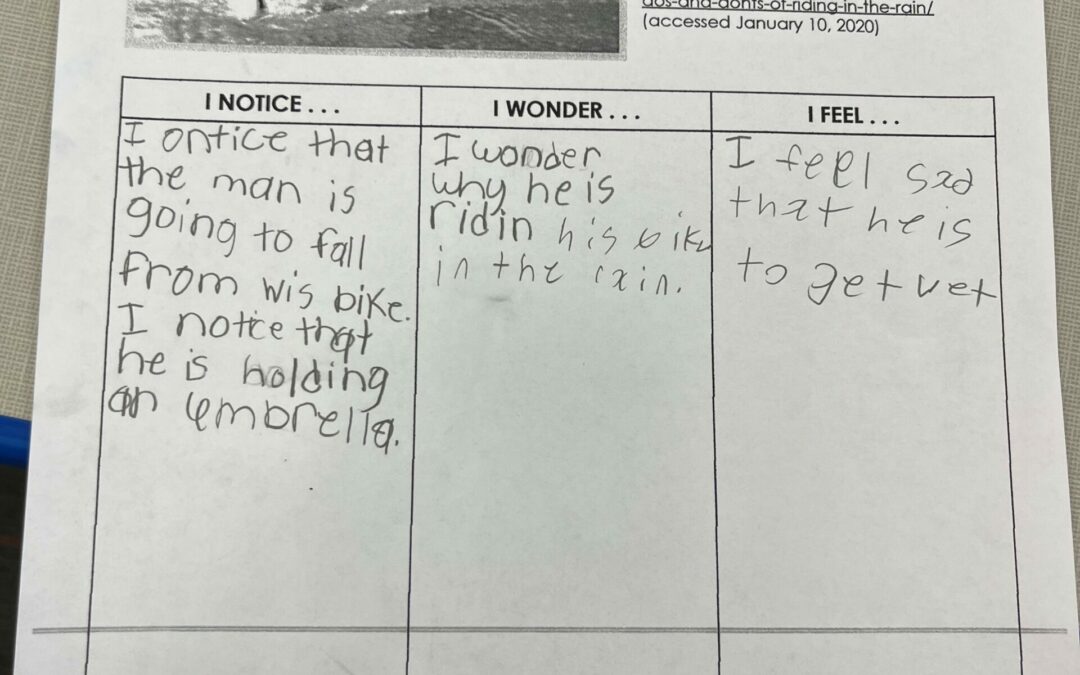 dos-and-donts-of-riding-in-the-rain/
(accessed January 10, 2020)
I NOTICE . . .
I ontice that
the man is
going to fall
from wis bike.
I notice that
he is holding
an umbrella.
I WONDER . . .
I wonder
why he is
ridin his bike
in the rain.
I FEEL . . .
I feel sad
that he is
to get vet